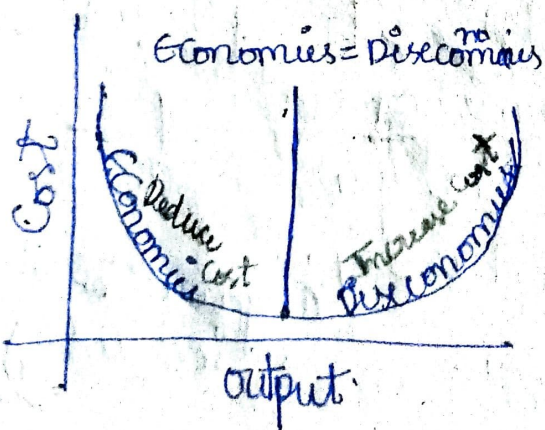 Economies = Diseconomies
Cost
Economies
Deduce
cost
Increase cost
Diseconomies
output.